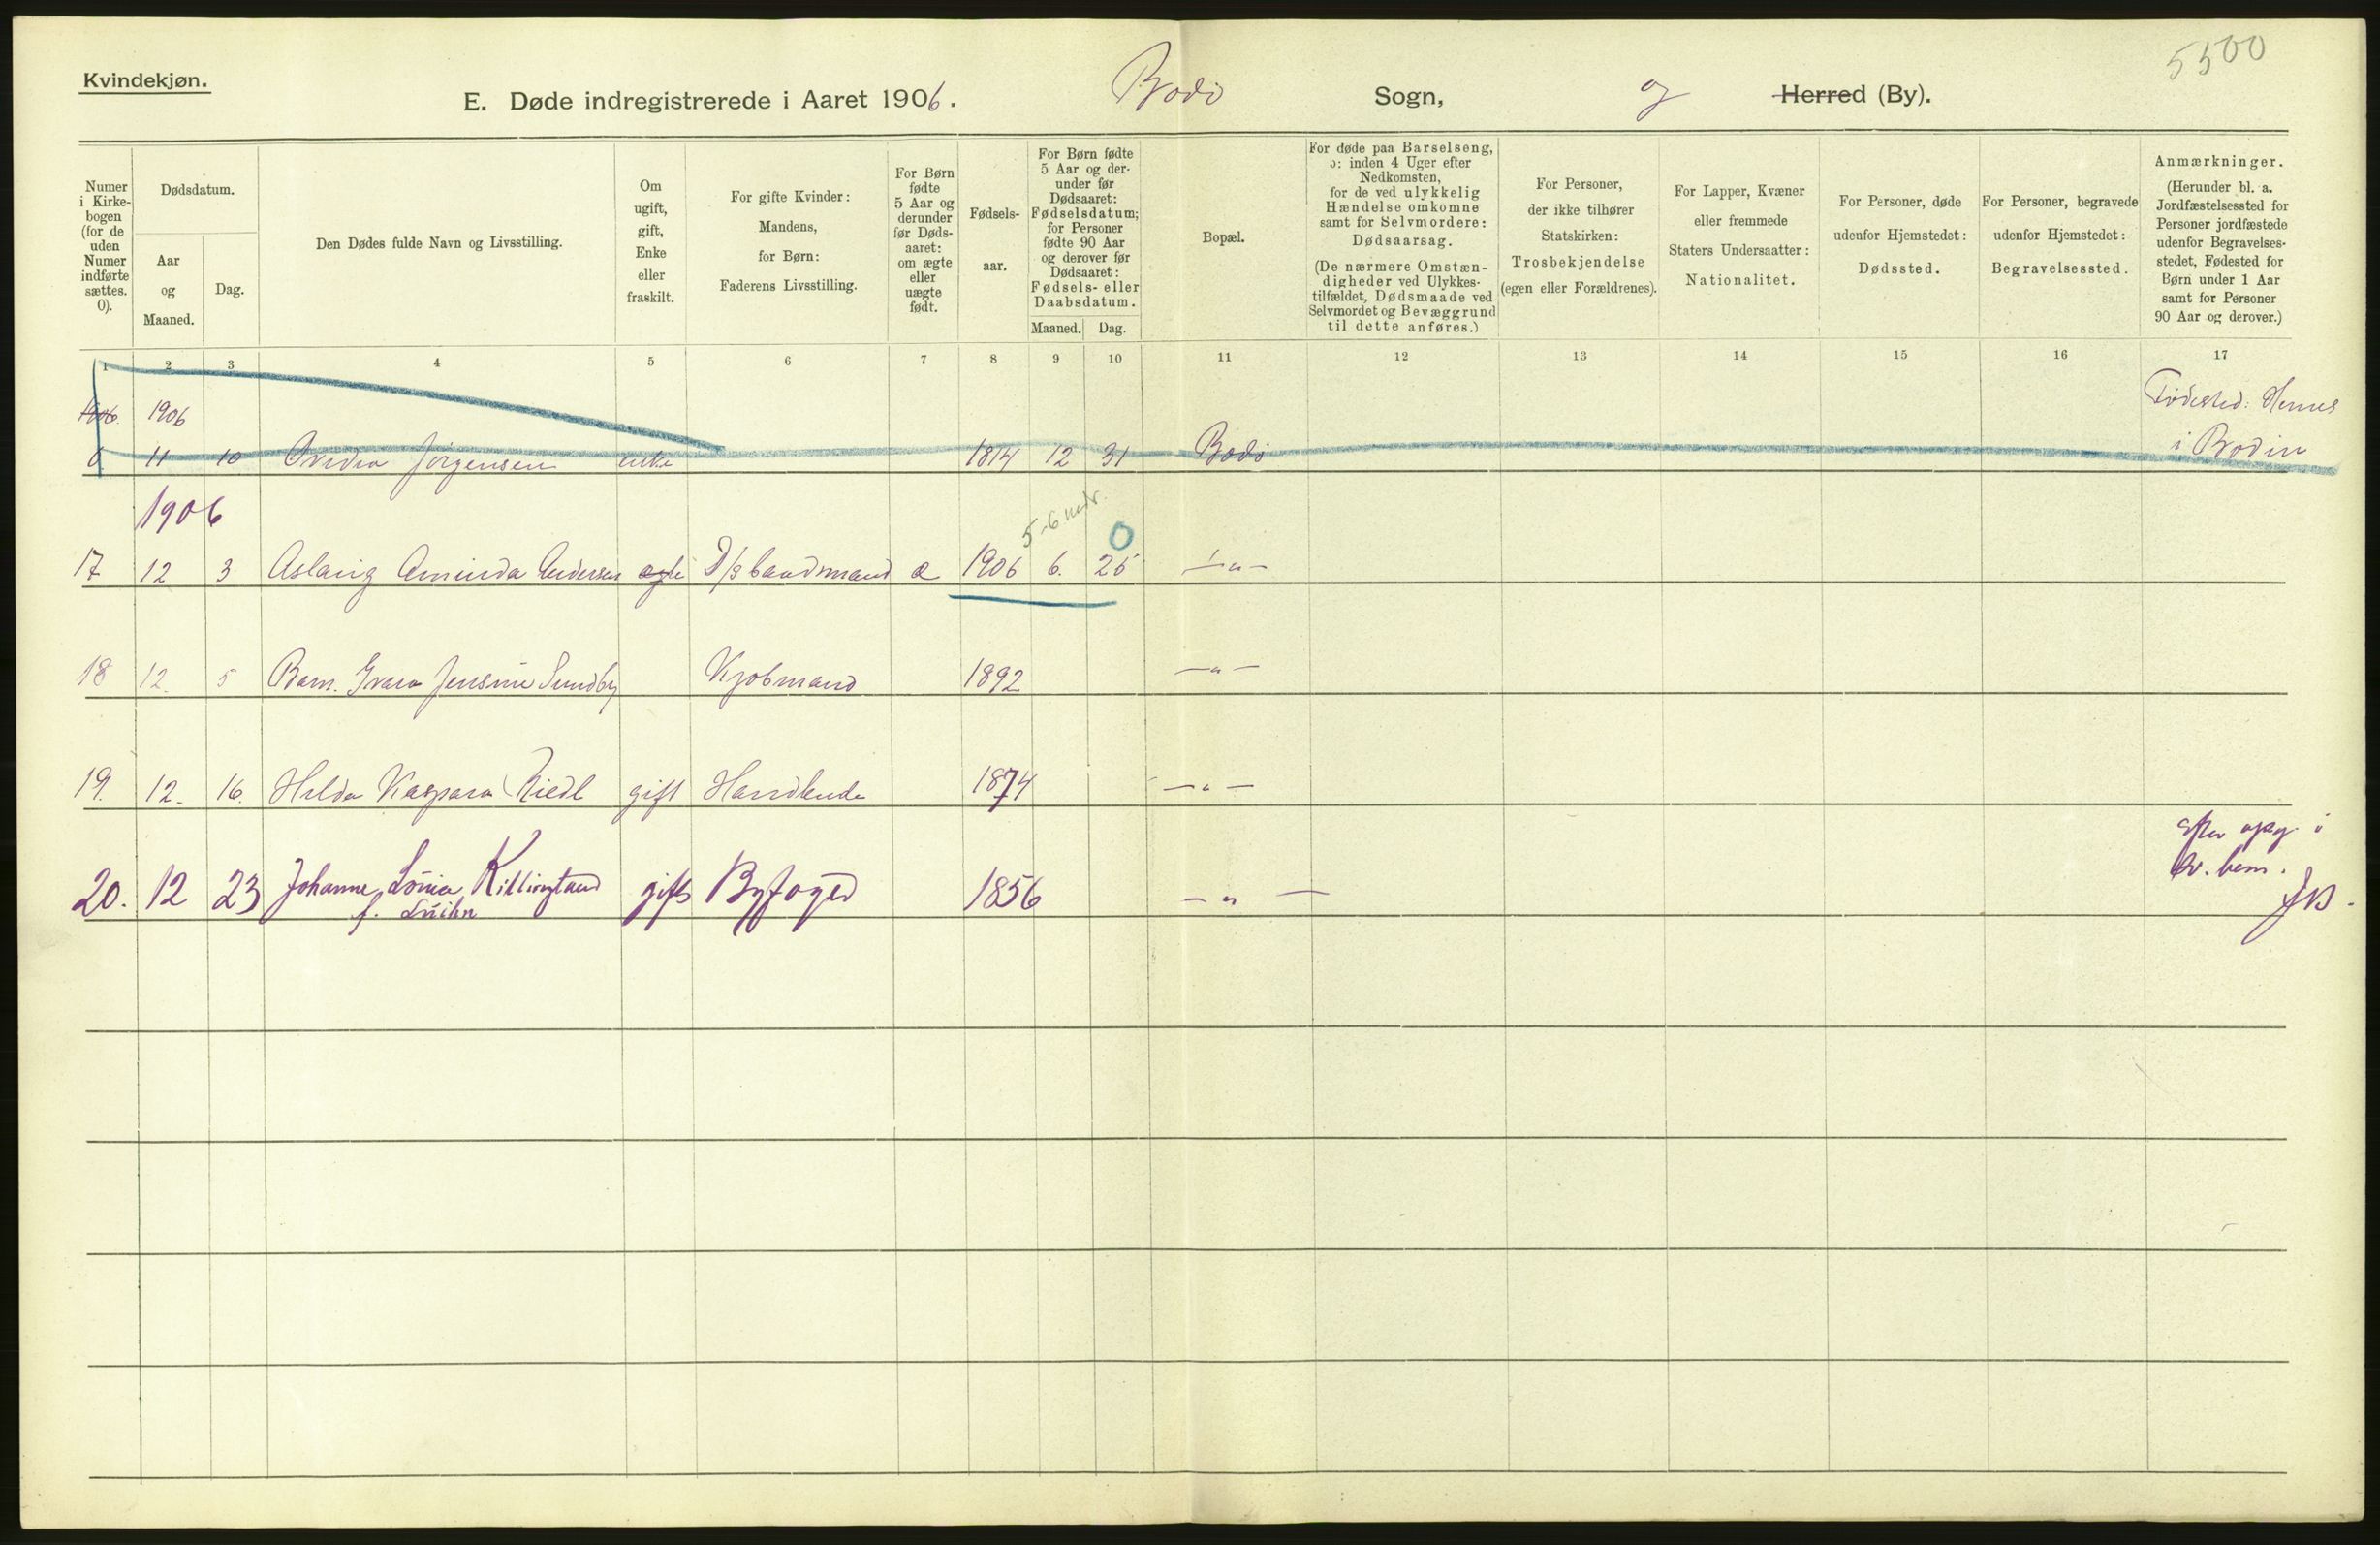 5500
Kvindekjøn.
E. Døde indregistrerede i Aaret 1906. Bodö Sogn, og Herred (By).
Numer i Kirkebogen (for de uden Numer indførte sættes. 0).
Dødsdatum.
Aar og Maaned.
Dag.
Den Dødes fulde Navn og Livsstilling.
Om ugift, gift, Enke eller fraskilt.
For gifte Kvinder: Mandens, for Børn: Faderens Livsstilling.
For Børn fødte 5 Aar og derunder før Dødsaaret: om ægte eller uægte født.
Fødselsaar.
For Børn fødte 5 Aar og derunder før Dødsaaret: Fødselsdatum; for Personer fødte 90 Aar og derover før Dødsaaret: Fødsels- eller Daabsdatum.
Maaned. Dag.
Bopæl.
For døde paa Barselseng, ɔ: inden 4 Uger efter Nedkomsten, for de ved ulykkelig Hændelse omkomne samt for Selvmordere: Dødsaarsag. (De nærmere Omstændigheder ved Ulykkestilfældet, Dødsmaade ved Selvmordet og Bevæggrund til dette anføres.)
For Personer, der ikke tilhører Statskirken: Trosbekjendelse (egen eller Forældrenes).
For Lapper, Kvæner eller fremmede Staters Undersaatter: Nationalitet.
For Personer, døde udenfor Hjemstedet: Dødssted.
For Personer, begravede udenfor Hjemstedet: Begravelsessted.
Anmærkninger. (Herunder bl. a. Jordfæstelsessted for Personer jordfæstede udenfor Begravelsesstedet, Fødested for Børn under 1 Aar samt for Personer 90 Aar og derover.)
1 2 3 4 5 6 7 8 9 10 11 12 13 14 15 16 17
1906. 1906 Födested: Hernes
6 11 10 Jörgensen enke 1814 12 31 Bodö i Bodin
1906
5-6 mdr. 0
17 12 3 Aslaug Andersen ægte D/s baadsmand æ 1906 6. 25 — " —
18 12. 5 Barn. Jensine Sundby Kjöbmand 1892 — " —
19. 12. 16. Hilda Kaspara Riedl gift 1874 — " —
Efter opg. i
20. 12 23 Johanne Killingland gift Byfoged 1856 — " —
f.
JB.